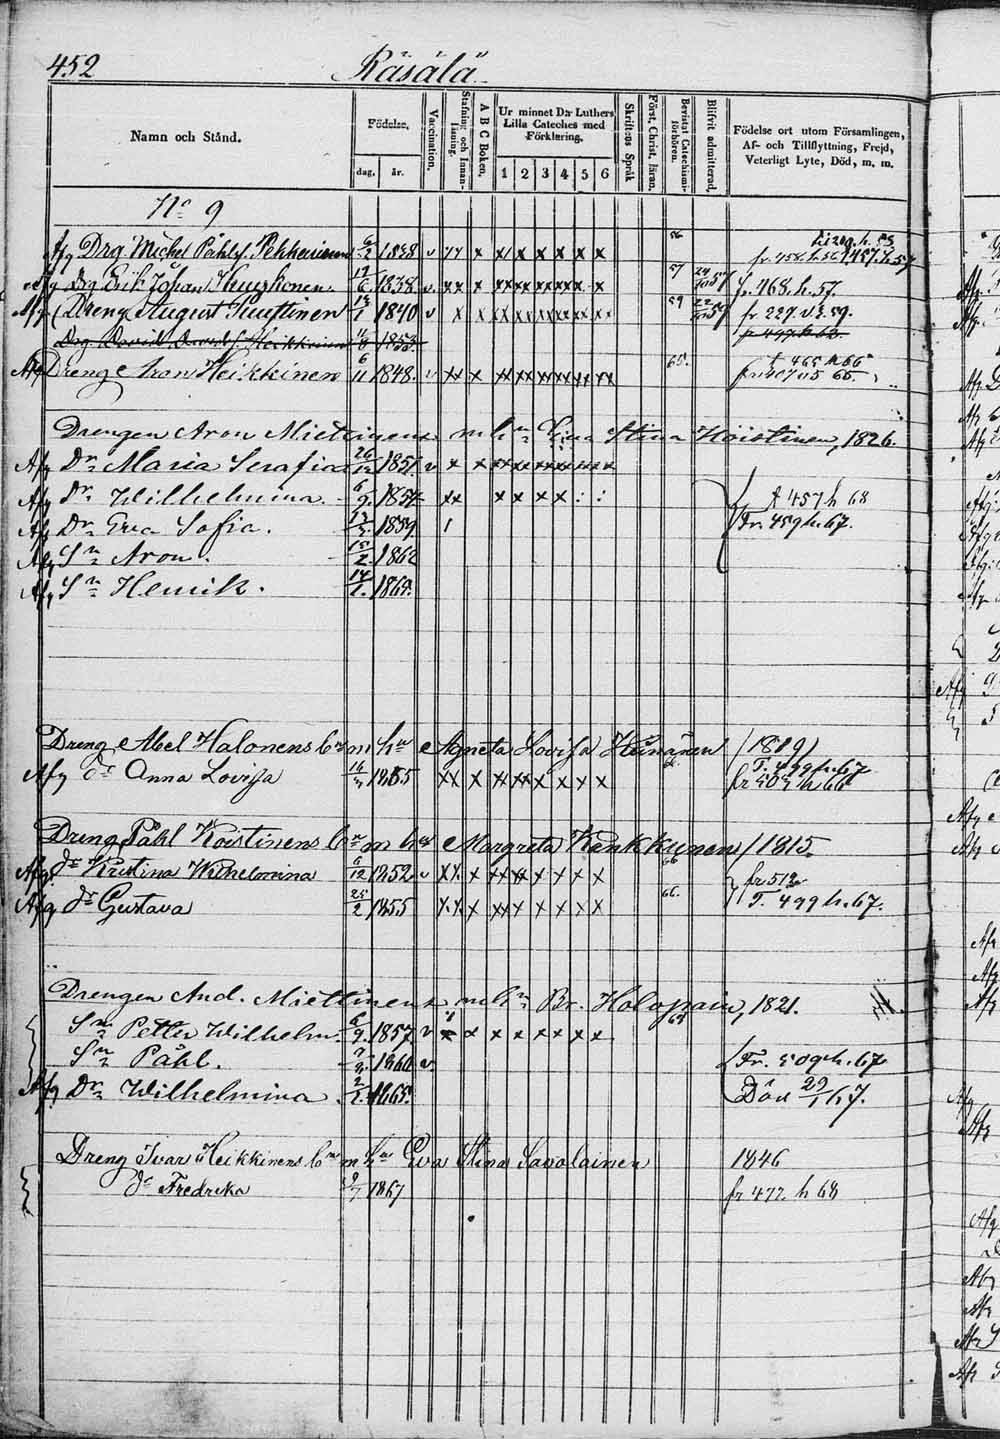 452 Räsälä
Namn och Stånd. Födelse, dag. år. Vaccination. Stafning och Innanläsning. A B C Boken. Ur minnet D:r Luthers Lilla Cateches med Förklaring. 1 2 3 4 5 6 Skrift:nes Språk Först. Christ. läran. Bevistat Catechismiförhören. Blifvit admitterad. Födelse ort utom Församlingen, Af- och Tillflyttning, Frejd, Veterligt Lyte, Död, m. m.
No 9
Afg Drg Michel Påhlss. Pekkarinen 6/2 1838 v x x x x x x x 56 fr. 458 h. 56 T 457. h. 57
Drg Erik Johan 17/6 1838 v. xx x xx xx xx xx x x 57 24/10 57 fr. 468. h. 57.
Afg Dreng August Kuuttinen 13/1 1840 v x x x xx xx xx x x 59 22/10 59 fr 227 v. 3. 59.
Drg David Heikkinen 11/8 1853 fr 497 h 62.
Afg Dreng Aron Heikkinen 6/11 1848. v xx x xx xx xx xx xx xx 65. t 465 h 66
fr 407 v 5 65.
Drengen Aron Miettinens m hn Lisa Stina Koistinen, 1826.
Afg Dr Maria Serafia 26/12 1851. v x x xx xx xx xx xx x
Afg Dr Wilhelmina. 6/9. 1854 xx x x x x : : t 457 h 68
Afg Dr Eva Sofia. 13/5. 1859 1 Fr. 459 h. 67.
Afg Sn Aron. 15/2. 1862
Afg Sn Henrik. 14/1. 1865.
Dreng Abel Halonens b. m hu Agneta Lovisa Hänninen (1819)
Afg dr Anna Lovisa 16/3 1855 xx x xx xx x x x x 66. T. 499 h. 67
fr 503 h 66
Dreng Påhl Koistinens b. m hu Margreta Kankkunen / 1815.
Afg. dr Kristina Wilhelmina 6/12 1852 v xx x xx xx x x x x 66 fr 512
Afg dr Gustava 25/2 1855 xx x xx x x x x x 66. T. 499 h. 67.
Drengen And. Miettinens m hn Br. Holopain, 1821.
Sn Petter Wilhelm. 6/9. 1857. v x x x x x x x x 67
Sn Påhl. 1860 v Fr. 509 h. 67
Afg Dr Wilhelmina. 2/2. 1865. Död 29/1 67.
Dreng Ivar Heikkinens b. m hu Eva Stina Savolainen 1846
dr Fredrika 9/7 1867 fr 472 h 68